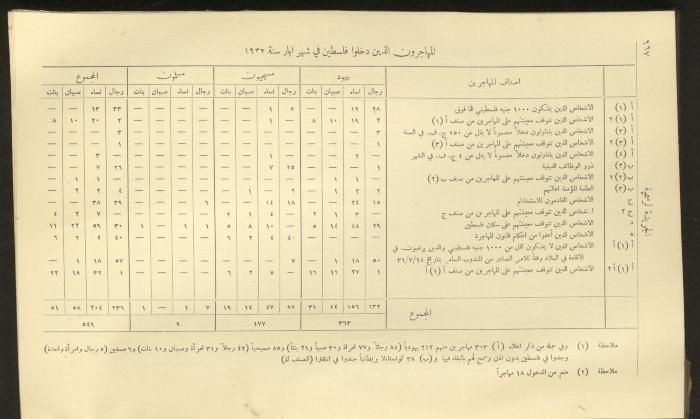 ٩٦٧
الجريدة الرسمية
المهاجرون الذين دخلوا فلسطين في شهر ايار سنة ١٩٣٢
اصناف المهاجرين يهود مسيحيون مسلمون المجموع
رجال نساء صبيان بنات رجال نساء صبيان بنات رجال نساء صبيان بنات رجال نساء صبيان بنات
أ (١) الاشخاص الذين يملكون ١٠٠٠ جنيه فلسطيني فما فوق ٢٨ ١٢ — — ٥ ١ — — — — — — ٣٣ ١٣ — —
أ (١) ٢ الاشخاص الذين تتوقف معيشتهم على المهاجرين من صنف أ (١) ٢ ١٩ ١٠ ٨ — ١ — — — — — — ٢ ٢٠ ١٠ ٨
أ (٣) الاشخاص الذين يتناولون دخلاً مضموناً لا يقل عن ٢٥٠ ج. ف. في السنة ٣ — — — — — — — — — — — ٣ — — —
أ (٣) ٢ الاشخاص الذين تتوقف معيشتهم على المهاجرين من صنف أ (٣) ١ — — — — — — — — — — — ١ — — —
أ (٤) الاشخاص الذين يتناولون دخلاً مضموناً لا يقل عن ٤ ج. ف. في الشهر — ٢ — — — ١ — — — — — — — ٣ — —
ب (١) ذوو الوظائف الدينية ١ — — — ٢٥ ٧ — — — — — — ٢٦ ٧ — —
ب (٢) ٢ الاشخاص الذين تتوقف معيشتهم على المهاجرين من صنف ب (٢) — ١ ١ — — — — — — — — — — ١ ١ —
ب (٣) الطلبة المؤمنة اعالتهم ٢ ٢ ١ — ٢ — ١ — — — — — ٤ ٢ ٢ —
ج الاشخاص القادمون للاستخدام ١٥ ٢٤ — — ١٨ ١٤ — — ٦ — — — ٣٩ ٣٨ — —
ج ٢ الاشخاص الذين تتوقف معيشتهم على المهاجرين من صنف ج — ٣ ١ ٢ — ٤ ١ ٢ — — — — — ٧ ٢ ٤
د الاشخاص الذين تتوقف معيشتهم على سكان فلسطين ٢٩ ٤٨ ١٤ ٥ — ١٠ ٨ ٥ ١ ١ — ١ ٣٠ ٥٩ ٢٢ ١١
ه الاشخاص الذين أعفوا من احكام قانون المهاجرة — — — — ٤٠ ٤ ٢ ٦ — — — — ٤٠ ٤ ٢ ٦
أ (١) أ الاشخاص الذين لا يملكون اقل من ١٠٠٠ جنيه فلسطيني والذين يرغبون في
الاقامة في البلاد وفقاً للامر الصادر من المندوب السامي بتاريخ ٣١/٧/١٤ ٥٠ ١٨ ١ — ٧ — — — — — — — ٥٧ ١٨ ١ —
أ (١) أ ٢ الاشخاص الذين تتوقف معيشتهم على المهاجرين من صنف أ (١) أ ١ ٢٧ ١٦ ١٦ — ٥ ٢ ٦ — — — — ١ ٣٢ ١٨ ٢٢
المجموع ١٣٢ ١٥٦ ٤٤ ٣١ ٩٧ ٤٧ ١٤ ١٩ ٧ ١ — ١ ٢٣٦ ٢٠٤ ٥٨ ٥١
٣٦٣ ١٧٧ ٩ ٥٤٩
ملاحظة (١) وفي جملة من ذكر اعلاه (أ) ٣٠٣ مهاجرين منهم ٢١٢ يهودياً (٨٤ رجلاً و٧٧ امرأة و٣٠ صبياً و٢١ بنتاً) و٨٥ مسيحياً (٤٢ رجلاً و٣١ امرأة وصبيان و١٠ بنات) و٦ مسلمين (٥ رجال وامرأة واحدة)
وجدوا في فلسطين بدون اذن وسمح لهم بالبقاء فيها و(ب) ٣٨ كونستابلا بريطانياً جندوا في انكلترا (الصنف ك)
ملاحظة (٢) منع من الدخول ١٨ مهاجراً